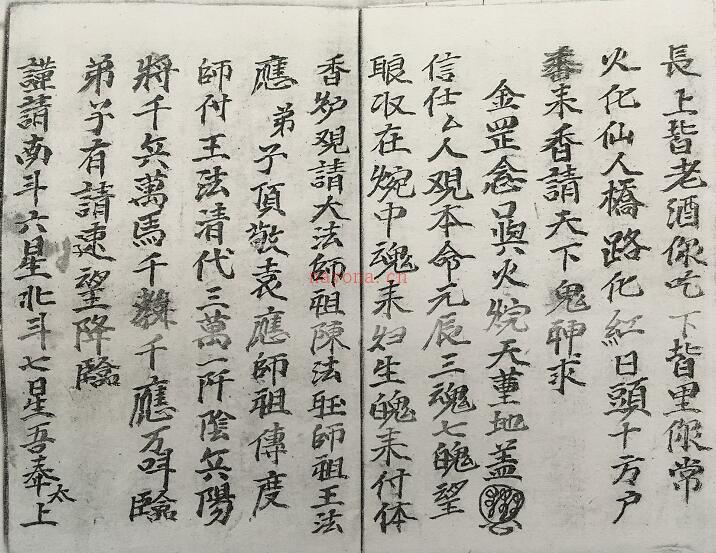 長上皆老酒你吃下皆里你常
火化仙人橋路化紅日頭十方户
耒香請天下鬼神求
金罡念口眞火烷天堇地盖
信仕厶人观本命元辰三魂七魄望
收在烷中魂耒妇生魄耒付体
香炉观請大法師祖陳法師祖王法
應弟子頂敬袁應師祖傳度
師付王法清代三萬一阡陰兵陽
將千兵萬馬千千應万呌臨
弟子有請速望降臨
謹請南斗六星北斗七星吾奉太上
nayona.cn